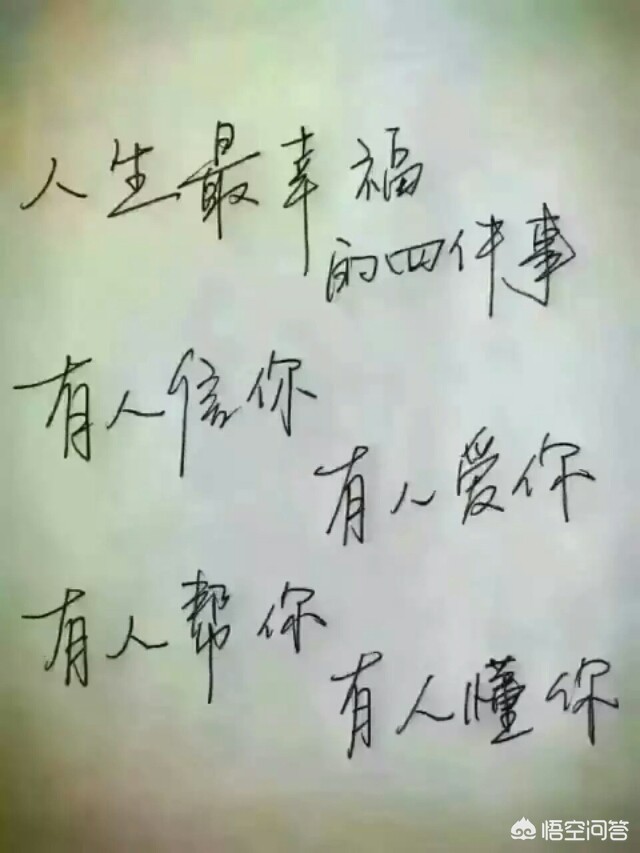 人生最幸福
的四件事
有人信你
有人爱你
有人帮你
有人懂你
悟空问答